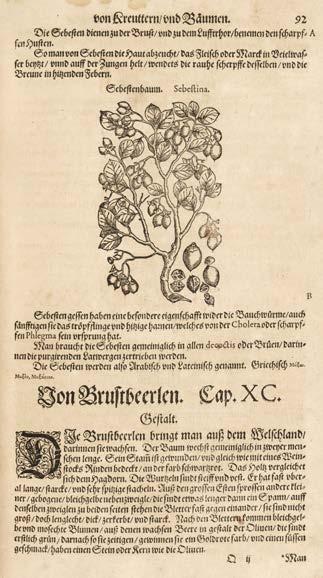 von Kreuttern/vnd Bäumen. 92
Die Sebesten dienen zu der Brust/vnd zu dem Lufftrohr/benemen den scharpf- A
fen Husten.
So man von Sebesten die Haut abzeucht/das Fleisch oder Marck in Veielwas-
ser beytzt/vnnd auff der Zungen helt/wendets die rauhe scherpffe desselben/vnd die
Breune in hitzenden Febern.
Sebestenbaum. Sebestina.
B
Sebesten gessen haben eine besondere eigenschafft wider die Bauchwürme/auch
sänfftigen sie das tröpfflinge vnd hitzige harnen/welches von der Cholera oder scharpf-
fen Phlegma sein vrsprung hat.
Man braucht die Sebesten gemeinglich in allen decoctis oder Brüen/darin-
nen die purgirenden Latwergen zertrieben werden.
Die Sebesten werden also Arabisch vnd Lateinisch genannt. Griechisch
Von Brustbeerlen. Cap. XC.
Gestalt.
DIe Brustbeerlen bringt man auß dem Welschland/
darinnen sie wachsen. Der Baum wechst gemeinglich in zweyer men-
schen lenge. Sein Stam ist gewunden/vnd gleich wie mit eines Wein-
stocks Rinden bedeckt/an der farb schwartzrot. Das Holtz vergleichet
sich dem Hagdorn. Die Wurtzeln sindt steiff vnd vest. Er hat fast vber-
al lange/starcke/vnd sehr spitzige stacheln. Auß den grossen Esten sprossen andere klei-
ne/gebogene/bleichgelbe nebenzweigle/die sindt etwas lenger dann ein Spann/auff
denselben zweiglen zu beiden seiten stehen die Bletter fast gegen einander/sie sind nicht
groß/doch lenglecht/dick/zerkerbt/vnd starck. Nach den Blettern kommen bleichgel-
be vnd mosechte Blumen/auß denen wachsen Beere in gestalt der Oliuen/die sindt
erstlich grün/darnach so sie zeitigen/gewinnen sie ein Goldrote farb/vnd einen süssen
geschmack/haben einen Stein oder Kern wie die Oliuen.
Q ij *Man